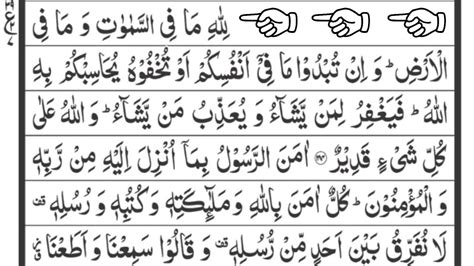 لِلّٰهِ مَا فِى السَّمٰوٰتِ وَ مَا فِى
الْاَرْضِؕ وَ اِنْ تُبْدُوْا مَا فِیْۤ اَنْفُسِكُمْ اَوْ تُخْفُوْهُ یُحَاسِبْكُمْ بِهِ
اللّٰهُؕ فَیَغْفِرُ لِمَنْ یَّشَآءُ وَ یُعَذِّبُ مَنْ یَّشَآءُؕ وَ اللّٰهُ عَلٰى
كُلِّ شَیْءٍ قَدِیْرٌ۝۲۸۴ اٰمَنَ الرَّسُوْلُ بِمَاۤ اُنْزِلَ اِلَیْهِ مِنْ رَّبِّهٖ
وَ الْمُؤْمِنُوْنَؕ كُلٌّ اٰمَنَ بِاللّٰهِ وَ مَلٰٓىِٕكَتِهٖ وَ كُتُبِهٖ وَ رُسُلِهٖ۫
لَا نُفَرِّقُ بَیْنَ اَحَدٍ مِّنْ رُّسُلِهٖ۫ وَ قَالُوْا سَمِعْنَا وَ اَطَعْنَا